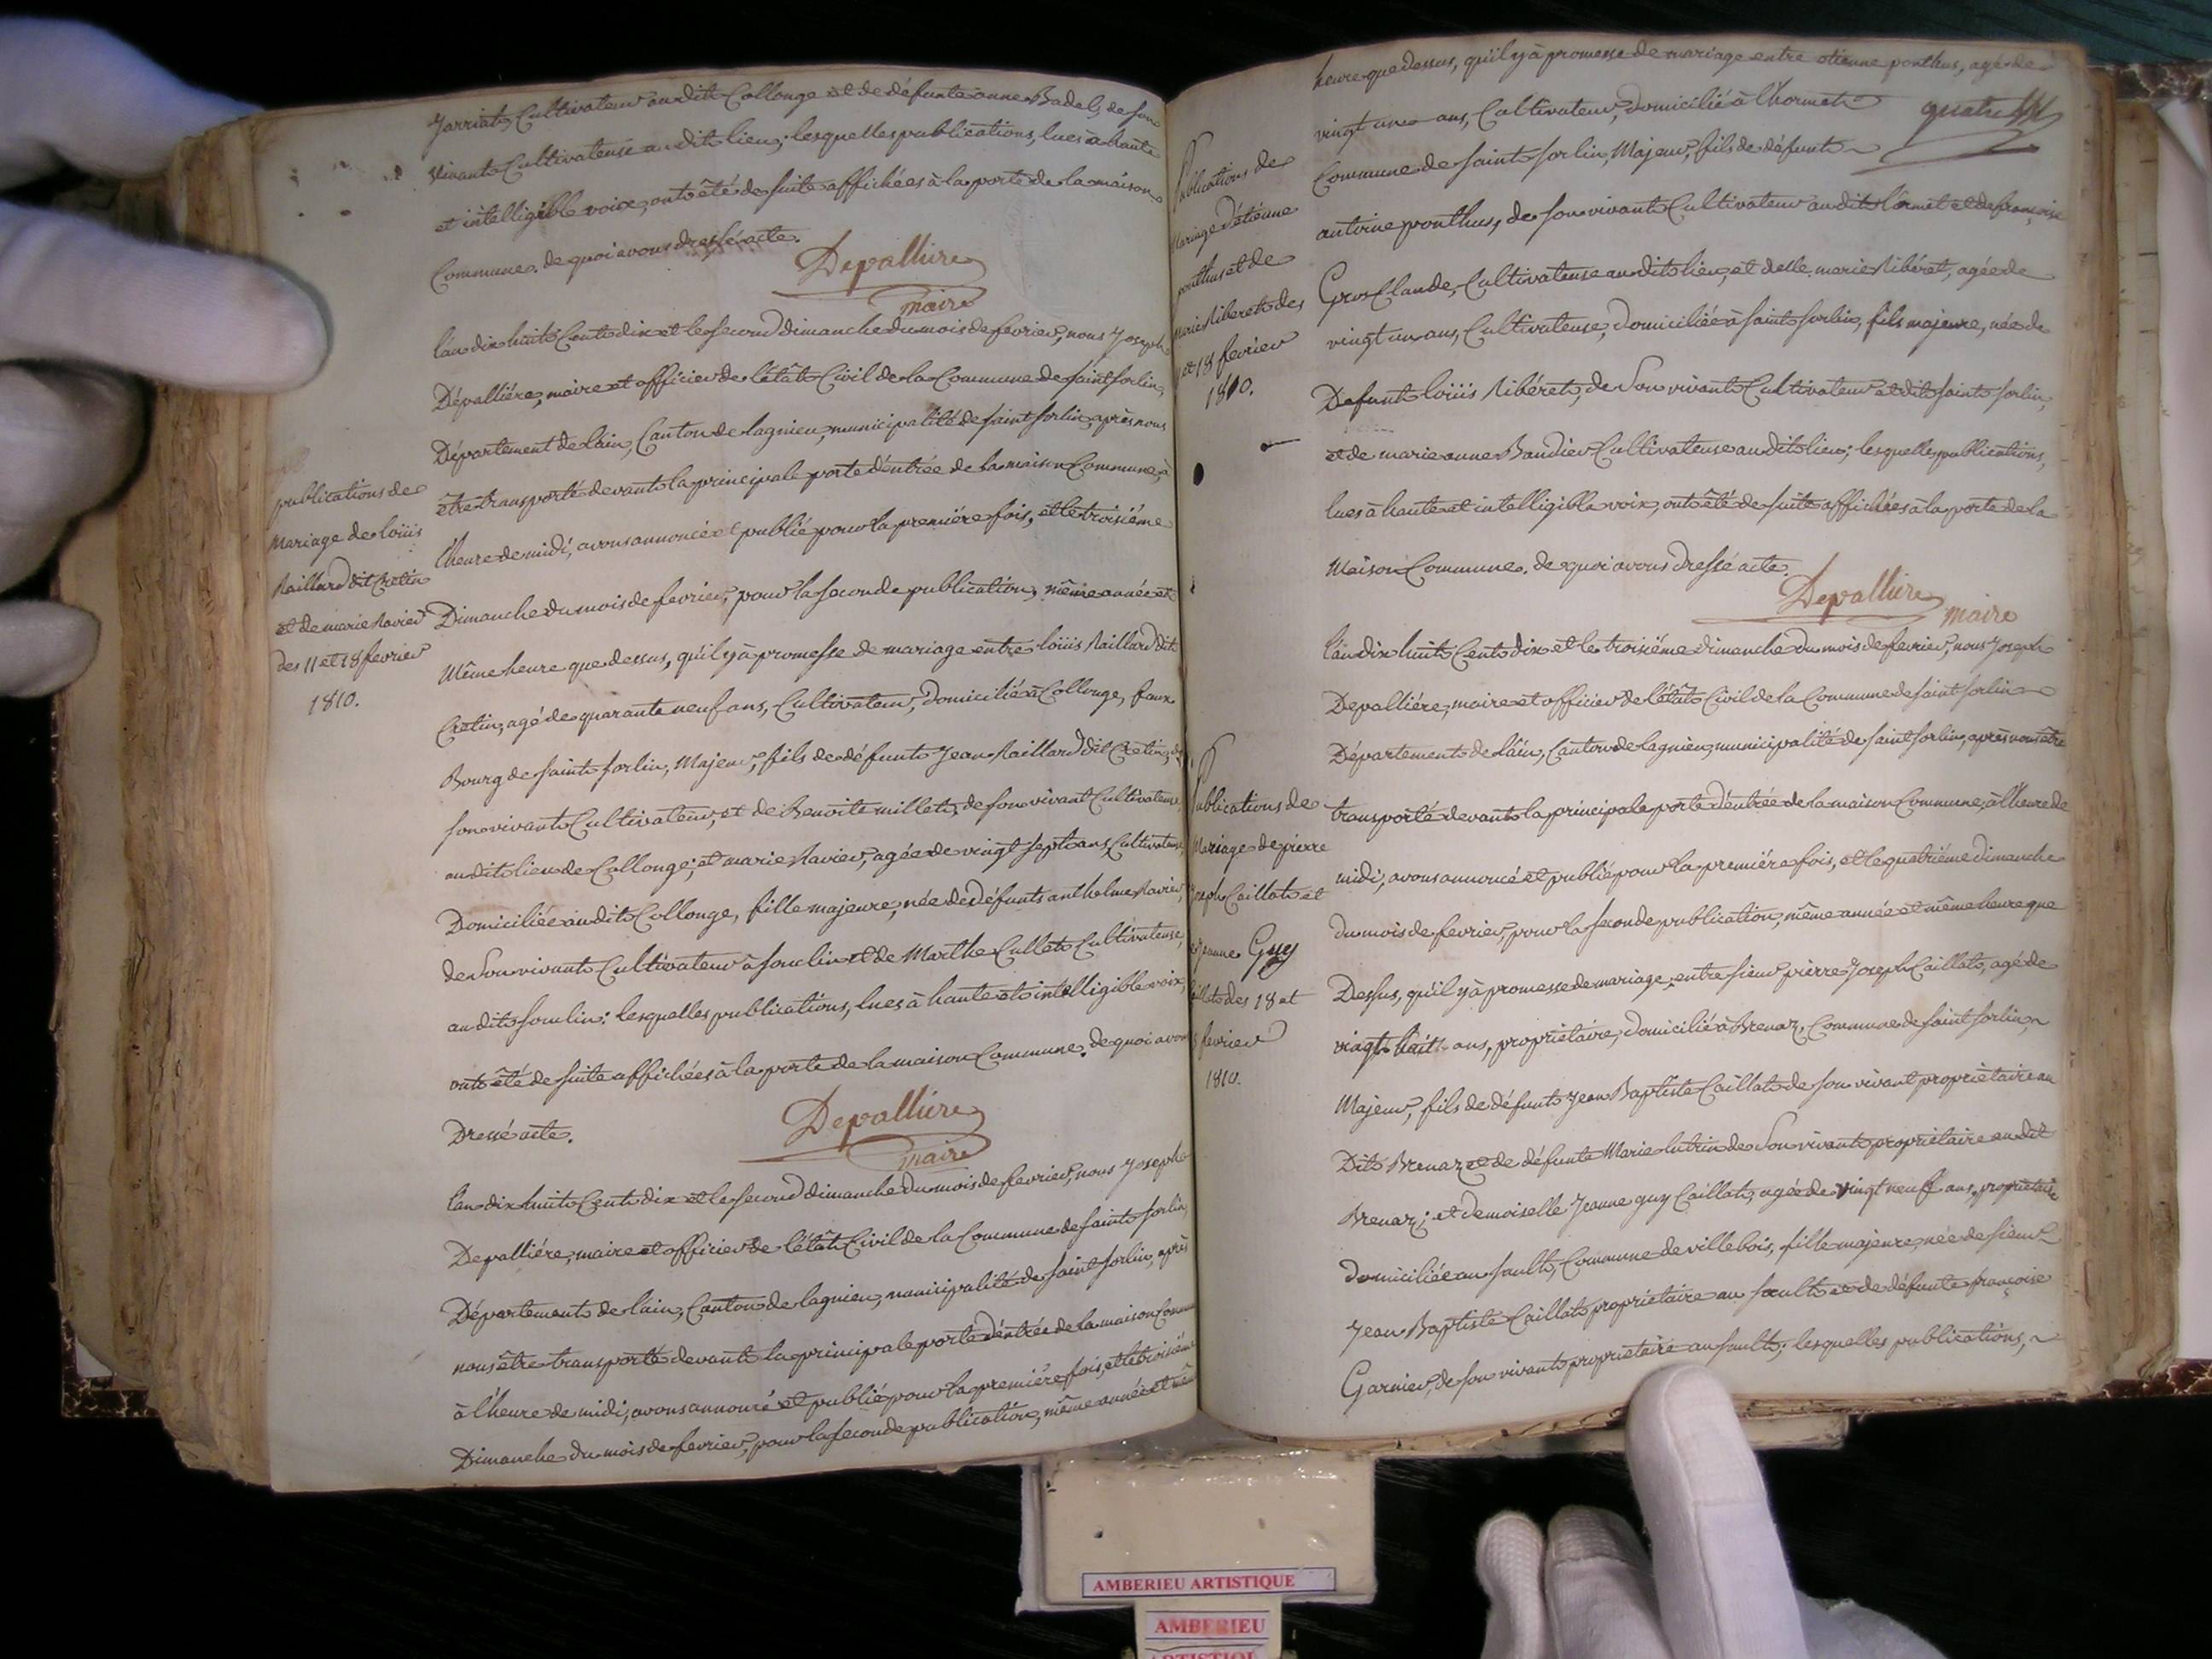 Jarriat, Cultivateur audit Collonge et de défunte anne Badel, de son
vivant Cultivateuse audit lieu; lesquelles publications, lues à haute
et intelligible voix, ont été de suite affichées à la porte de la maison
Commune. de quoi avons dressé acte.
Depalliére
maire
publications de
mariage de loüis
Raillard dit Cretin
et de marie Ravier
des 11 et 18 fevrier
1810.
l'an dix huit Cent dix et le second dimanche du mois de fevrier, nous Joseph
Dépalliére, maire et officier de l'état Civil de la Commune de saint sorlin,
Département de l'ain, Canton de lagnieu, municipalité de saint sorlin, après nous
être transporté devant la principale porte d'entrée de la maison Commune, à
l'heure de midi, avons annoncé et publié pour la premiére fois, et le troisiéme
Dimanche du mois de fevrier, pour la seconde publication, même année et
même heure que dessus, qu'il y à promesse de mariage entre loüis Raillard dit
Cretin, agé de quarante neuf ans, Cultivateur, domicilié à Collonge, faux
Bourg de saint sorlin, Majeur, fils de défunt Jean Raillard dit Cretin, de
son vivant Cultivateur, et de Benoite millet, de son vivant Cultivateuse
audit lieu de Collonge; et marie Ravier, agée de vingt sept ans, Cultivateuse
Domiciliée audit Collonge, fille majeure, née de défunts anthelme Ravier,
de Son vivant Cultivateur à souclin et de Marthe Cullet Cultivateuse,
audit souclin: lesquelles publications, lues à haute et intelligible voix,
ont été de suite affichées à la porte de la maison Commune. de quoi avons
Dressé acte.
Depalliére
maire
l'an dix huit Cent dix et le second dimanche du mois de fevrier, nous Joseph
Depalliére, maire et officier de l'état Civil de la Commune de saint sorlin,
Département de l'ain, Canton de lagnieu, municipalité de saint sorlin, après
nous être transporté devant la principale porte d'entrée de la maison Commune
à l'heure de midi, avons annoncé et publié pour la premiére fois, et le troisiéme
Dimanche du mois de fevrier, pour la seconde publication, même année et même
heure que dessus, qu'il y à promesse de mariage entre etienne ponthus, agé de
quatre
Publications de
Mariage d'étienne
ponthus et de
marie Riberet des
et 18 fevrier
1810.
vingt un ans, Cultivateur, domicilié à l'hormet
Commune de saint sorlin, Majeur, fils de défunt
antoine ponthus, de son vivant Cultivateur audit lormet et de françoise
Gros Claude, Cultivateuse audit lieu, et delle marie Ribéret, agée de
vingt un ans, Cultivateuse, domiciliée à saint sorlin, fils majeure, née de
Defunt loüis Ribéret, de Son vivant Cultivateur audit saint sorlin,
et de marie anne Baudier Cultivateuse audit lieu; lesquelles publications,
lues à haute et intelligible voix, ont été de suite affichées à la porte de la
Maison Commune. de quoi avons dressé acte.
Depalliére
maire
Publications de
Mariage de pierre
Joseph Caillat et
de jeanne Guy
Caillat des 18 et
fevrier
1810.
l'an dix huit Cent dix et le troisiéme dimanche du mois de fevrier, nous Joseph
Depalliére, maire et officier de l'état Civil de la Commune de saint sorlin
Département de l'ain, Canton de lagnieu, municipalité de saint sorlin, après nous être
transporté devant la principale porte d'entrée de la maison Commune, à l'heure de
midi, avons annoncé et publié pour la premiére fois, et le quatriéme dimanche
du mois de fevrier, pour la seconde publication, même année et même heure que
Dessus, qu'il y à promesse de mariage, entre sieur pierre Joseph Caillat, agé de
vingt huit ans, propriétaire, domicilié à Brenaz, Commune de saint sorlin,
Majeur, fils de défunt Jean Baptiste Caillat de son vivant propriétaire au
Dit Brenaz et de défunte Marie lutrin de Son vivant propriétaire audit
Brenaz; et demoiselle Jeanne guy Caillat, agée de vingt neuf ans, propriétaire
domiciliée au sault, Commune de villebois, fille majeure, née de sieur
Jean Baptiste Caillat propriétaire au sault et de défunte françoise
Garnier, de son vivant propriétaire au sault; lesquelles publications,
AMBERIEU ARTISTIQUE
AMBERIEU
ARTISTIQUE